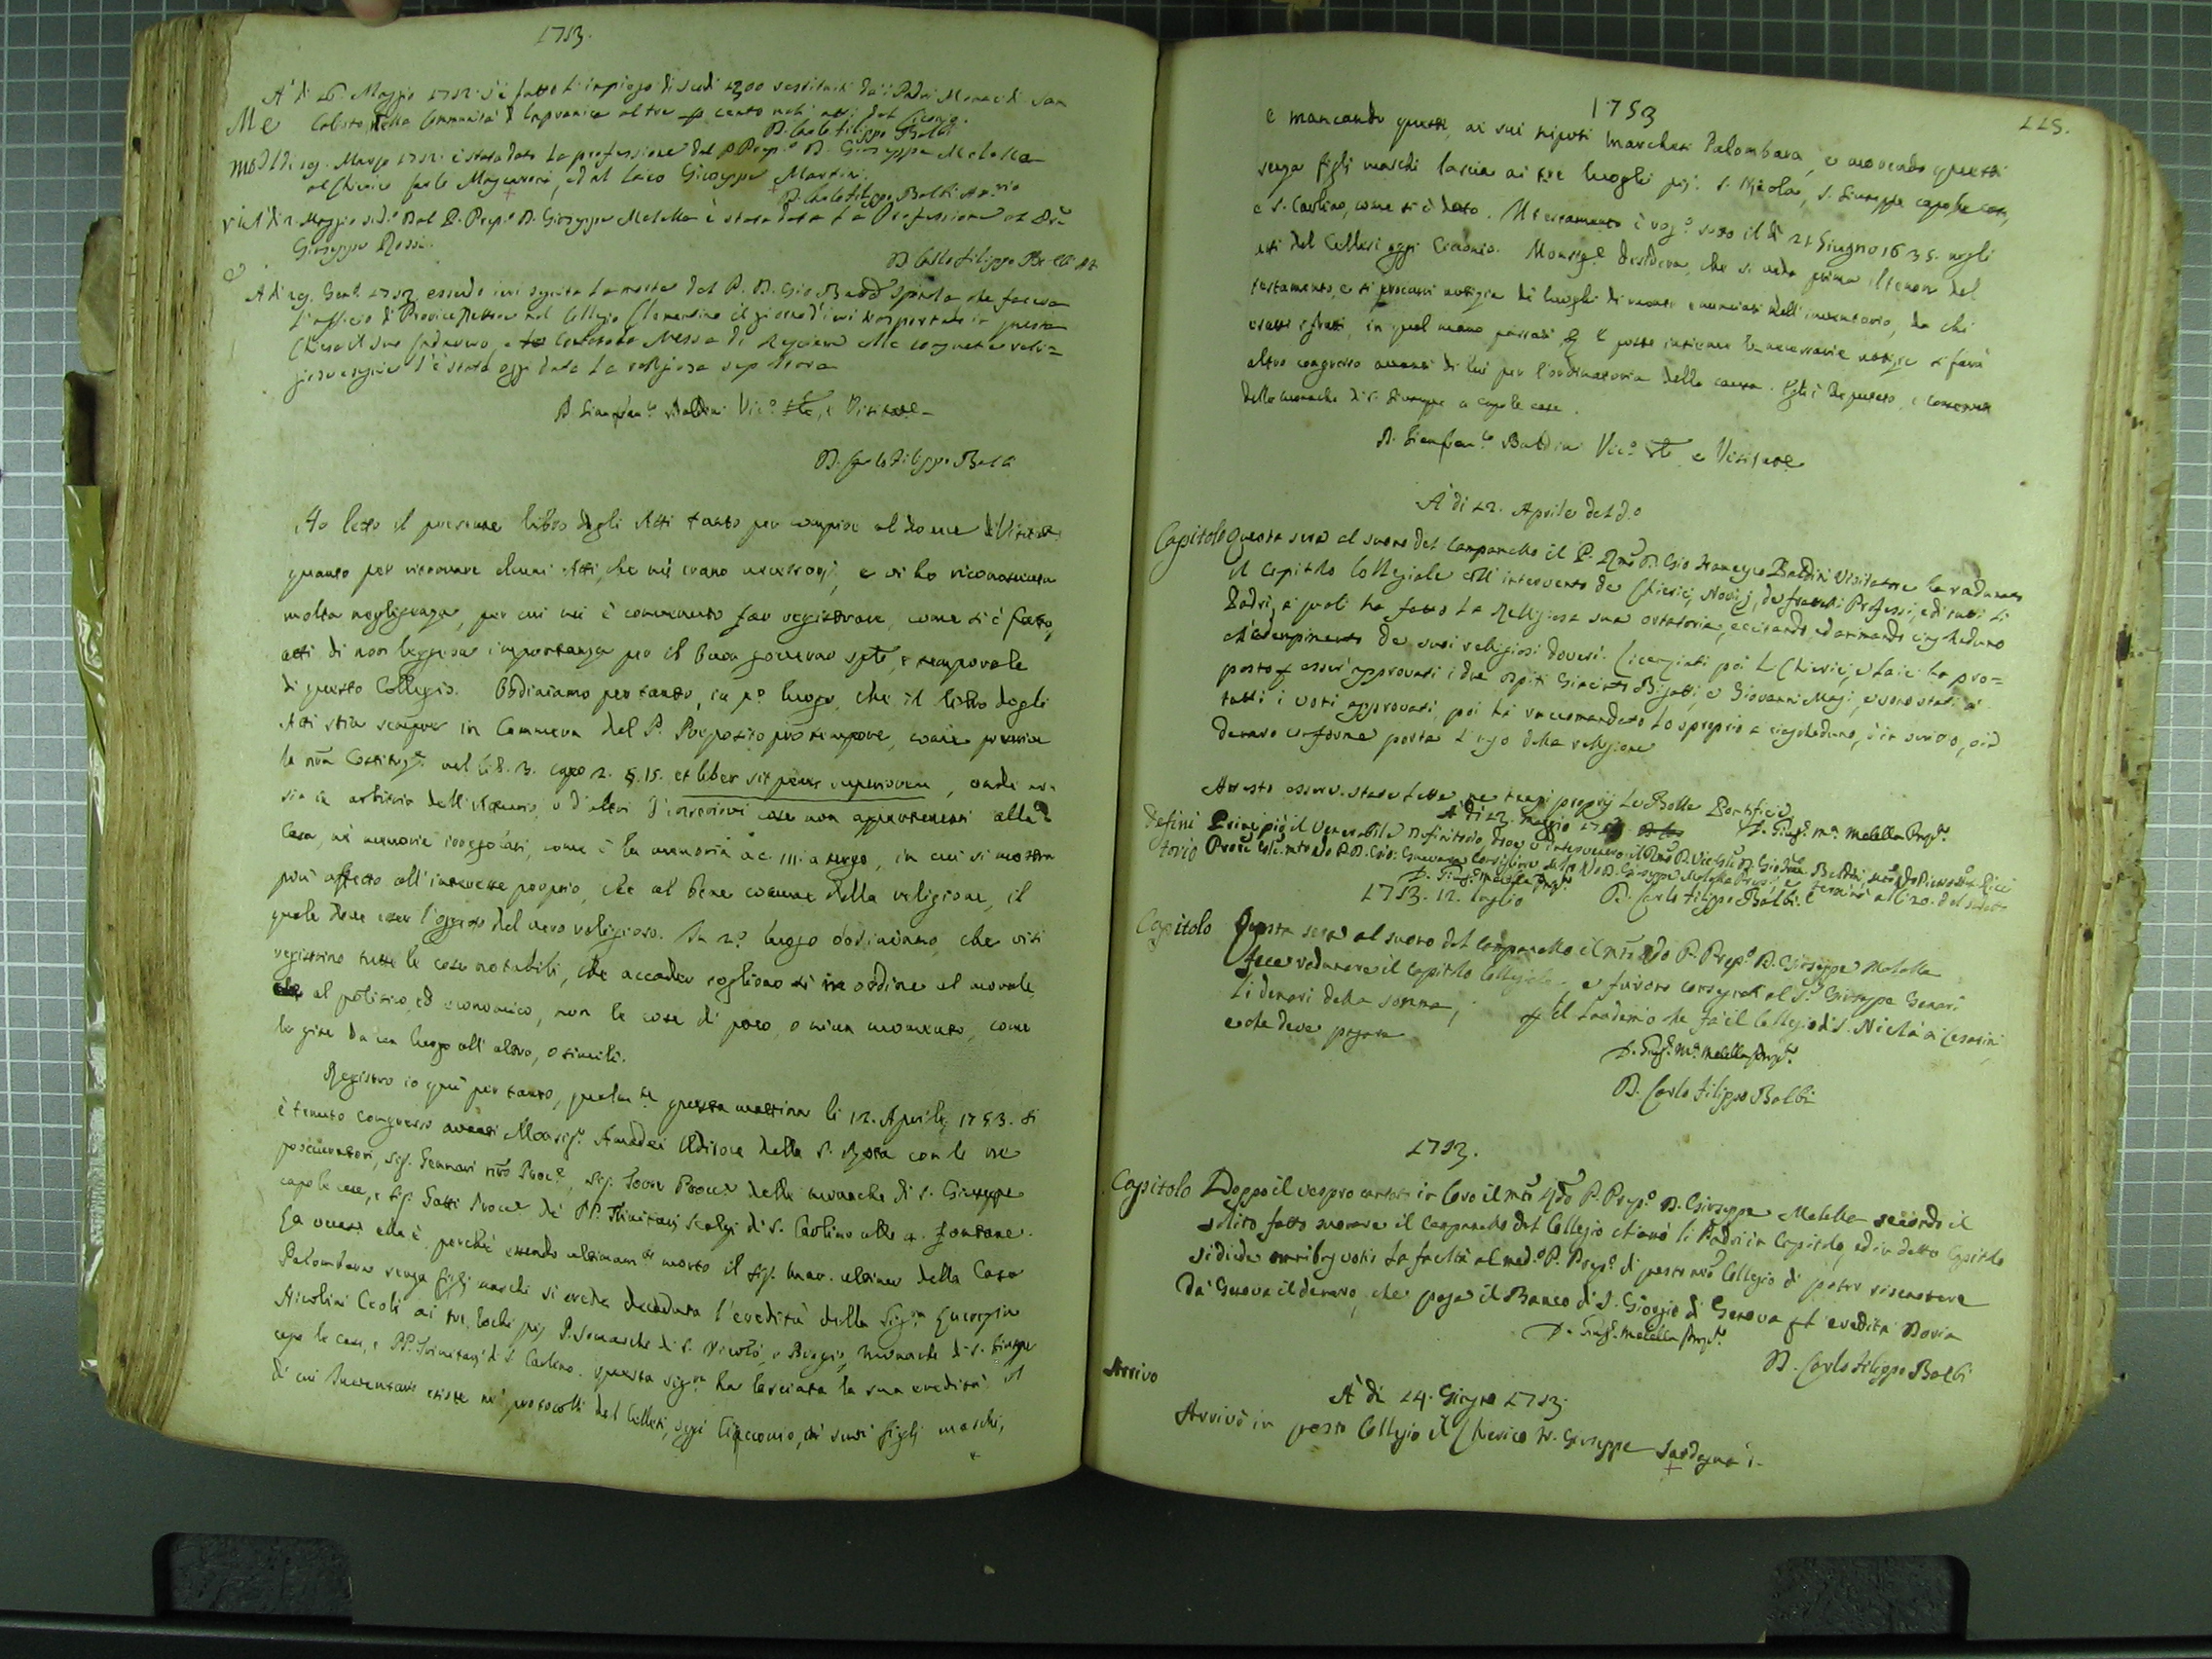 1753.
A' di 26. Maggio 1752. s'è fatto l'impiego di scudi 1300 restituiti da i Padri Monaci di San
Me Calisto, della Communità di al tre per cento negli atti del Ciconio.
D. Carlo Filippo Balbi
mo A di 19. Marzo 1752. è stata data la professione dal P. Prep.o D. Giuseppe Melella
al Chierico Carlo Mazzaroni, ed al laico Giuseppe Martini.
D. Carlo Filippo Balbi
rie A di 2. Maggio sud.o Dal P. Prep.o D. Giuseppe Melella è stata data la Professione al
Giuseppe Rossi.
D. Carlo Filippo Balbi
e. A di 19. Gen.o 1753. essendo ieri seguita la morte del P. D. Gio Spinola che faceva
l'officio di Provice Rettore nel Collegio Clementino il giorno d'ieri trasportato in questa
Chiesa il suo Cadavero, e cantatada Messa di Requiem colle consuete reli=
giose esequie l'è stata oggi data la religiosa sepoltura
D. Gianfran.co Baldini Vic.o Gle, e Visitatore
D. Carlo Filippo Balbi
Ho letto il presente libro degli Atti tanto per compire al dovere di Visitat.
quanto per ritrovare alcuni Atti, che mi erano necessarj, e vi ho riconosciuta
molta negligenza, per cui mi è convenuto far registrare, come si è fatto,
atti di non leggiera importanza per il buon governo sple, e temporale
di questo Collegio. Ordiniamo per tanto, in p.o luogo, che il libro degli
Atti stia sempre in Camera del P. Preposito pro tempore, come prescrive
la nra Costituz.e nel lib. 3. capo 2. §. 15. et liber sit penes superiorem, onde no
sia in arbitrio dell'Attuario, o d'altri d'inserirvi cose non appartenenti alla
Casa, nè memorie irregolari, come è la memoria a c. 111. a tergo, in cui si mostra
più affetto all'interesse proprio, che al bene comune della religione, il
quale deve esser l'oggetto del vero religioso. In 2.o luogo ordiniamo, che visi
registrino tutte le cose notabili, che accader sogliono sì in ordine al morale,
al politico, ed economico, non le cose di poco, o niun momento, come
le gite da un luogo all'altro, o simili.
Registro io quì per tanto, qualm.te questa mattina li 12. Aprile 1753. si
è tenuto congresso avanti Monsig.r Amadei Uditore della S. Rota con le tre
procuratori, Sig. Gennari nro Proc.e, Sig. Proc.e delle monache di S. Giuseppe
capo le case, e Sig. Gatti Proc.e de' PP. Trinitarj Scalzi di S. Carlino alle 4. fontane.
La causa ella è, perchè essendo ultimam.te morto il Sig. Mar. ultimo della Casa
Palombara senza figli maschi si crede decaduta l'eredità della Sig.ra Lucrezia
Nicolini Ceoli ai tre lochi pij P. Somaschi di S. Nicolò, e Biagio, Monache di S. Giuseppe
capo le case, e PP. Trinitarj di S. Carlino. Questa Sig.ra ha lasciata la sua eredità, il
di cui Inventario esiste ne' protocolli del Celleti, oggi Ciacconio, ai suoi figlj maschi,
e
1753
115.
e mancando questi, ai sui nipoti Marchesi Palombara, e morendo questi
senza figli maschi lascia ai tre luoghi pij. S. Nicola, S. Giuseppe capo le case,
e S. Carlino, come si è detto. Il testamento è rog.o sotto il di 21 Giugno 1635. negli
atti del Celleti oggi Ciconio. Monsig.e desidera, che si veda prima il tenor del
testamento, e si procuri notizie di luoghi di monti enunciati nell'inventario, da chi
esatti i frutti, in qual mano passati per poste insieme le necessarie notizie si farà
altro congresso avanti di lui per l'ordinatoria della causa. Egli è Deputato, e Conservat
delle monache di S. Giuseppe a capo le case.
D. Gianfran.co Baldini Vic.o Gle e Visitatore
A di 12. Aprile del d.o
Capitolo Questa sera al suono del Campanello il P. Rmo D. Gio Francesco Baldini Visitatore ha radunato
il Capitolo Collegiale coll'intervento de Chierici, Novizj, de fratelli Professi, e di tutti li
Padri, a quali ha fatto la Religiosa sua esortatoria, eccitando, ed animando ciascheduno
all'adempimento de suoi religiosi doveri. Licenziati poi li Chierici, e Laici ha pro=
posto per esser approvati i due ospiti Giacinto Bigatti, e Giovanni Magi, e sono stati a
tutti i voti approvati, poi hà raccomandato lo spreprio a ciascheduno, ò in scritto, o in
denaro conforme porta l'uso della religione
Attesto esser state lette ne tempi proprij le Bolle Pontificie,
D. Gius.e M.a Melella Prep.to
A' di 23. Maggio 1753.
Defini
torio Principiò il Venerabile Definitorio, dove v'intervenero il Rmo P. Vic. Gle D. Gio Fran. Baldini,
D. Gius.e Melella Prep.to
D. Carlo Filippo Balbi. e terminò alli 20. del sudetto
1753. 12. Luglio
Capitolo Questa sera al suono del Campanello il P. Prep.o D. Giuseppe Melella
fece radunare il Capitolo Collegiale, e furono consegnati al S.r Giuseppe Genari
li denari della somma, per il Laudemio che fà il Collegio di S. Nicolà a Cesarini
e che deve pagare
D. Gius.e M.a Melella Prep.to
D. Carlo Filippo Balbi
1753.
Capitolo Doppo il vespro cantato in Coro il P. Prep.o D. Giuseppe Melella secondo il
solito fatto suonare il Campanello del Collegio chiamò li Padri in Capitolo, ed in detto Capitolo
si diede omnibus votis la facoltà al med.o P. Prep.o di questo nro Collegio di poter riscuotere
da Genova il denaro, che paga il Banco di S. Giorgio di Genova per l'eredità Doria
D. Gius.e Melella Prep.to
D. Carlo Filippo Balbi
Arrivo
A' di 14. Giugno 1753.
Arrivò in questo Collegio il Chierico Giuseppe Sardagna